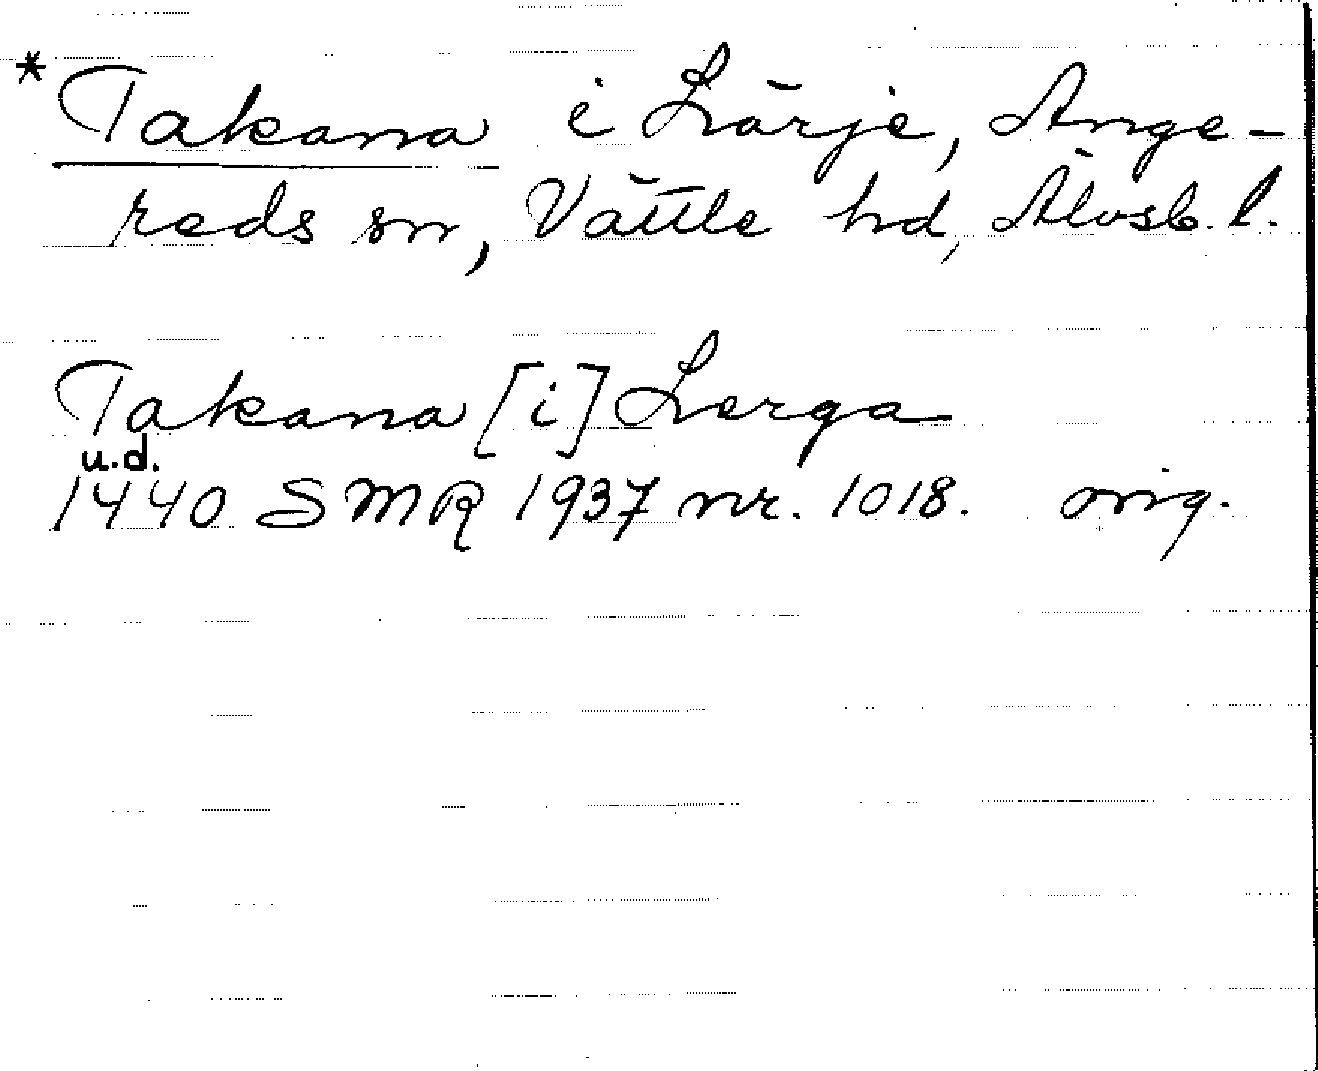 * Takana i Lärje, Ange-
reds sn, Vättle hd, Älvsb. l.
Takana [i] Lerga
u.d.
1440 SMR 1937 nr. 1018. orig.